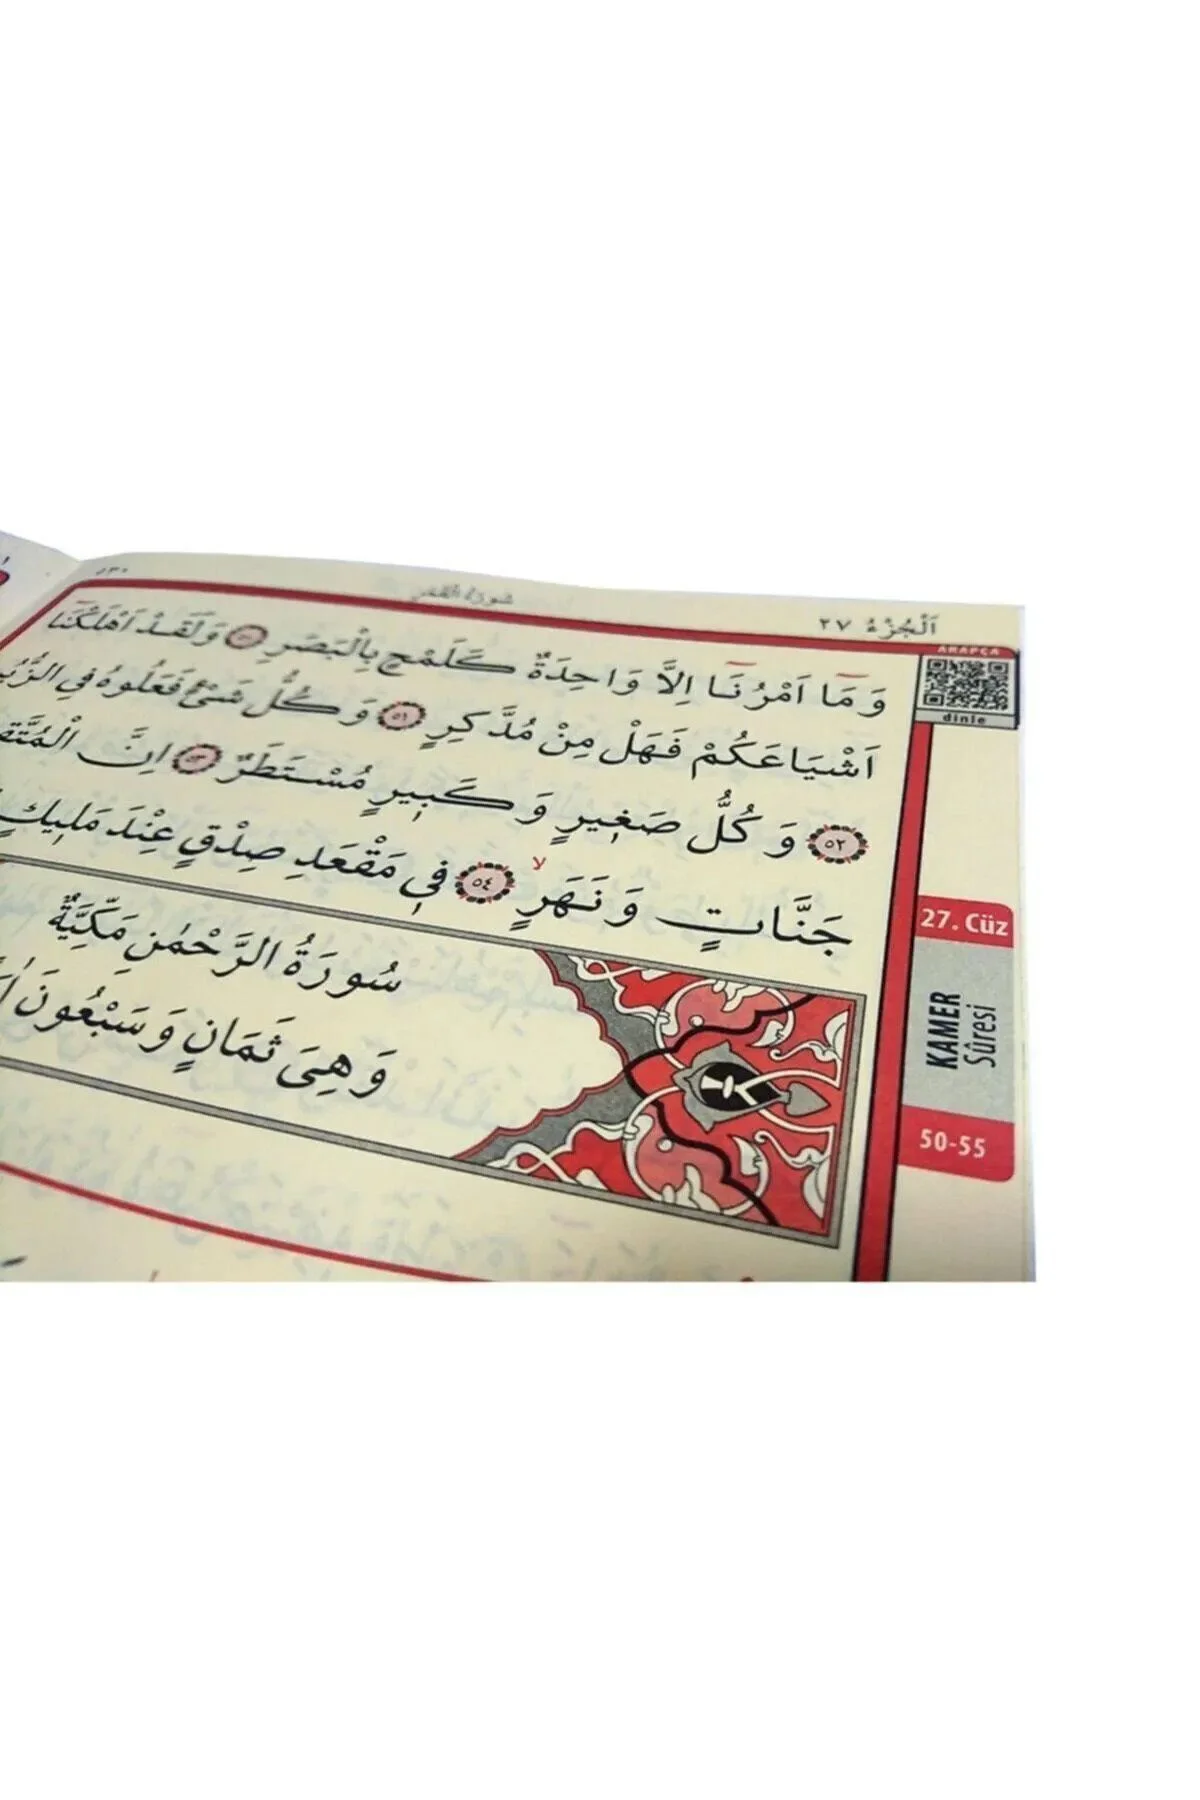 ٥٣٠ سُورَةُ الْقَمَرِ اَلْجُزْءُ ٢٧
وَمَٓا اَمْرُنَٓا اِلَّا وَاحِدَةٌ كَلَمْحٍ بِالْبَصَرِ ٥٠ وَلَقَدْ اَهْلَكْنَٓا
اَشْيَاعَكُمْ فَهَلْ مِنْ مُدَّكِرٍ ٥١ وَكُلُّ شَىْءٍ فَعَلُوهُ فِى
٥٢ وَكُلُّ صَغٖيرٍ وَكَبٖيرٍ مُسْتَطَرٌ ٥٣ اِنَّ
جَنَّاتٍ وَنَهَرٍۙ ٥٤ فٖى مَقْعَدِ صِدْقٍ عِنْدَ مَلٖيكٍ
سُورَةُ الرَّحْمٰنِ مَكِّيَّةٌ
وَهِىَ ثَمَانٍ وَسَبْعُونَ
ARAPÇA
dinle
27. Cüz
KAMER
Sûresi
50-55